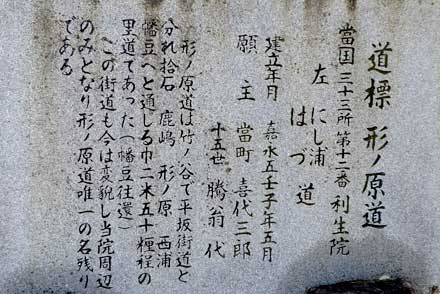 道標 形ノ原道
當国 三十三所第十二番 利生院
左 にし浦
はづ 道
建立年月 嘉永五壬子年五月
願主 當町 喜代三郎
十五世 騰翁代
形ノ原道は竹ノ谷で平坂街道と
分れ拾石 鹿嶋 形ノ原 西浦
幡豆へと通じる巾二米五十糎程の
里道であった(幡豆往還)
この街道も今は変貌し当院周辺
のみとなり形ノ原道唯一の名残り
である